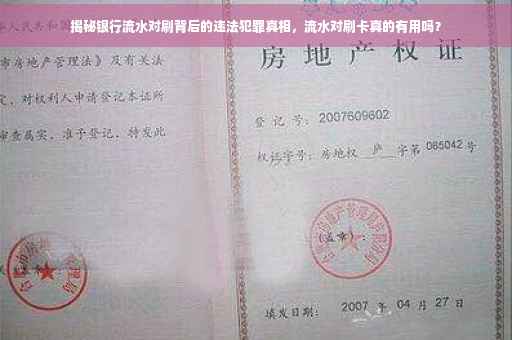 揭秘银行流水对刷背后的违法犯罪真相，流水对刷卡真的有用吗？
人民共和国
市房地产管理法》及有关法
定，对权利人申请登记本证所
审查属实，准予登记，特发此
房地产权证
登记号：2007609602
权证字号：房地权 庐 字第 065042 号
（盖章）：
填发日期：2007 年 04 月 27 日